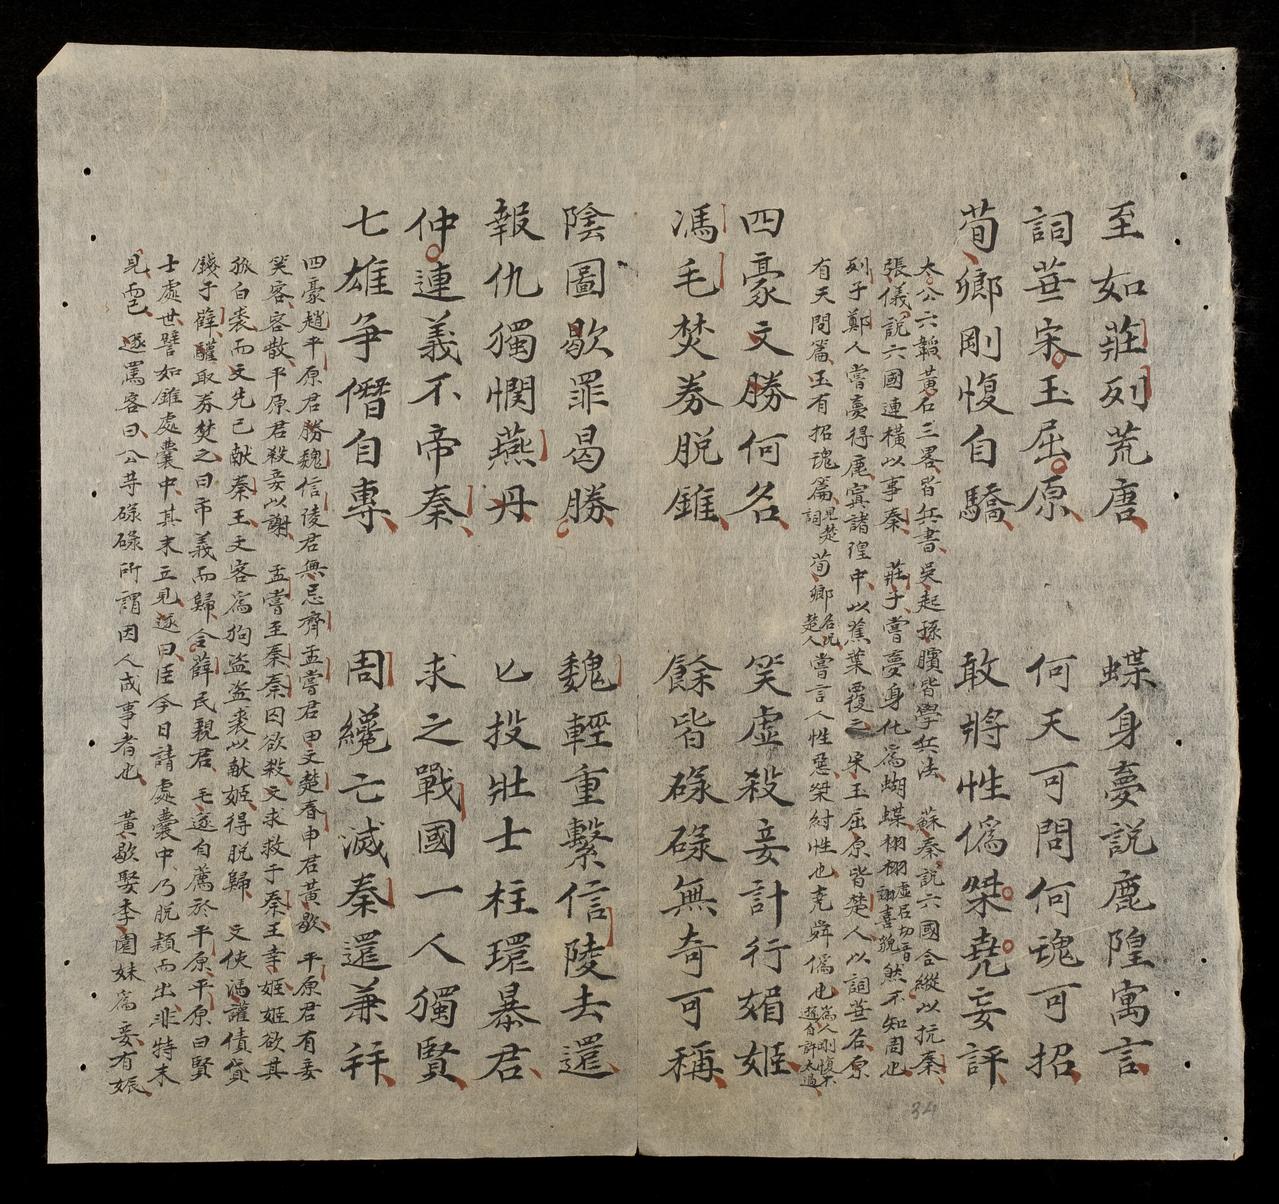 至如莊列荒唐　蝶身夢説鹿隍寓言
詞華宋玉屈原　何天可問何魂可招
荀卿剛愎自驕　敢將性僞桀堯妄評
太公六韜黃石三畧皆兵書吳起孫臏皆學兵法　蘇秦說六國合縱以抗秦
張儀說六國連橫以事秦　莊子嘗夢身化爲蝴蝶栩栩然不知周也
列子鄭人嘗薨得鹿寘諸隍中以蕉葉覆之　宋玉屈原皆楚人以詞華名原
有天問篇玉有招魂篇見楚詞　荀卿名況楚人嘗言人性惡桀紂性也堯舜僞也爲人剛愎不遜自許太過
四豪文勝何名　笑虛殺妾計行媚姬
馮毛焚券脱錐　餘皆碌碌無奇可稱
陰圖歇罪曷勝　魏輕重繫信陵去還
報仇獨憫燕丹　匕投壯士柱環暴君
仲連義不帝秦　求之戰國一人獨賢
七雄争僭自專　周纔亡滅秦還兼并
四豪趙平原君勝魏信陵君無忌齊孟嘗君田文楚春申君黃歇　平原君有妾
笑客客散平原君殺妾以謝　孟嘗至秦秦囚欲殺文求救于秦王幸姬姬欲其
狐白裘而文先已献秦王文客爲狗盗盗裘以献姬得脱歸　文使馮讙債貸
錢于薛讙取券焚之曰市義而歸令薛民親君　毛遂自薦於平原平原曰賢
士處世譬如錐處囊中其末立見遂曰臣今日請處囊中乃脱穎而出非特末
見而已　遂罵客曰公等碌碌所謂因人成事者也　黃歇娶李園妹爲妾有娠
34